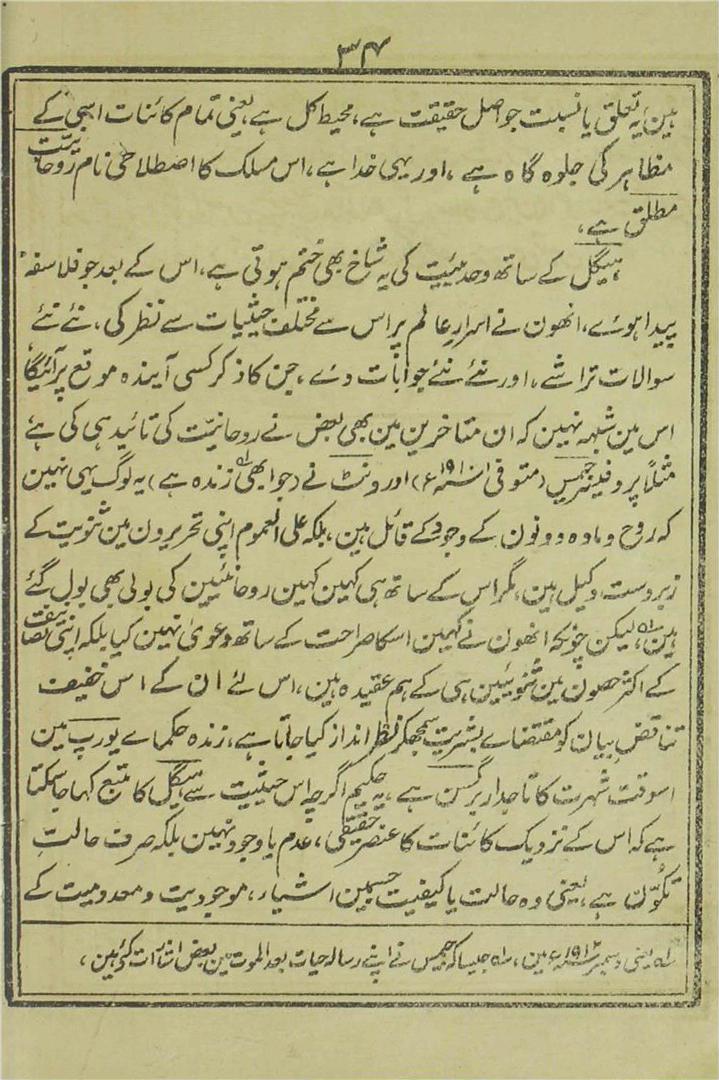 ۳۴
ہین یہ تعلق یا نسبت جو اصل حقیقت ہے، محیط کل ہے، یعنی تمام کائنات اسی کے
مظاہر کی جلوہ گاہ ہے، اور یہی خدا ہے، اس مسلک کا اصطلاحی نام روحانیت
مطلق ہے،
ہیگل کے ساتھ وحدیئیت کی یہ شاخ بھی ختم ہوتی ہے، اس کے بعد جو فلاسفہ
پیدا ہوئے، انھون نے اسرار عالم پر اس سے مختلف حیثیات سے نظر کی، نئے نئے
سوالات تراشے، اور نئے نئے جوابات دئے، جن کا ذکر کسی آیندہ موقع پر آئیگا
اس مین شبہہ نہین کہ ان متاخرین مین بھی بعض نے روحانیّت کی تائید ہی کی ہے
مثلاً پروفیسر جمیس (متوفی ۱۹۱۰ء) اور ونٹ نے (جو ابھی زندہ ہے) یہ لوگ یہی نہین
کہ روح و مادہ دونون کے وجود کے قائل ہین، بلکہ علی العموم اپنی تحریرون مین ثنویت کے
زبردست وکیل ہین، مگر اس کے ساتھ ہی کہین کہین روحانیئین کی بولی بھی بول گئے
ہین، لیکن چونکہ انھون نے کہین اسکا صراحت کے ساتھ دعویٰ نہین کیا بلکہ اپنی تصانیف
کے اکثر حصون مین ثنویئین ہی کے ہم عقیدہ ہین، اس لئے ان کے اس خفیف
تناقض بیان کو مقتضاے بشریت سمجھکر نظر انداز کیا جاتا ہے، زندہ حکماے یورپ مین
اسوقت شہرت کا تاجدار برگسن ہے، یہ حکیم اگرچہ اس حیثیت سے ہیگل کا متبع کہا جاسکتا
ہے کہ اس کے نزدیک کائنات کا عنصر حقیقی، عدم یا وجود نہین بلکہ صرف حالتِ
تکوّن ہے، یعنی وہ حالت یا کیفیت جسمین اشیار، موجودیت و معدومیت کے
لہ یعنی دسمبر ۱۹۱۲ء مین، لہ جیسا کہ جمیس نے اپنے رسالہ حیات بعد الموت مین بعض اشارات کئے ہین،